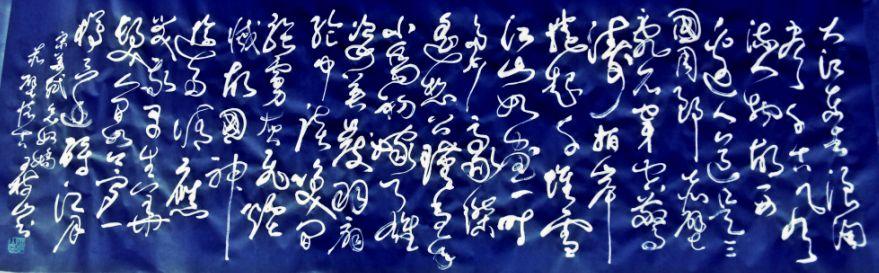 大江东去浪淘
尽千古风
流人物故西
边人道是三
國周郎赤壁
乱石穿空惊
涛拍岸
捲起千堆雪
江山如画一时
多少豪杰
遥想公瑾当年
小乔初嫁了雄
姿英发羽扇
纶巾谈笑间
强虏灰飞烟
灭故國神
游多情应
笑我早生华
发人间如梦一
樽还酹江月
宋苏轼念奴娇
赤壁怀古